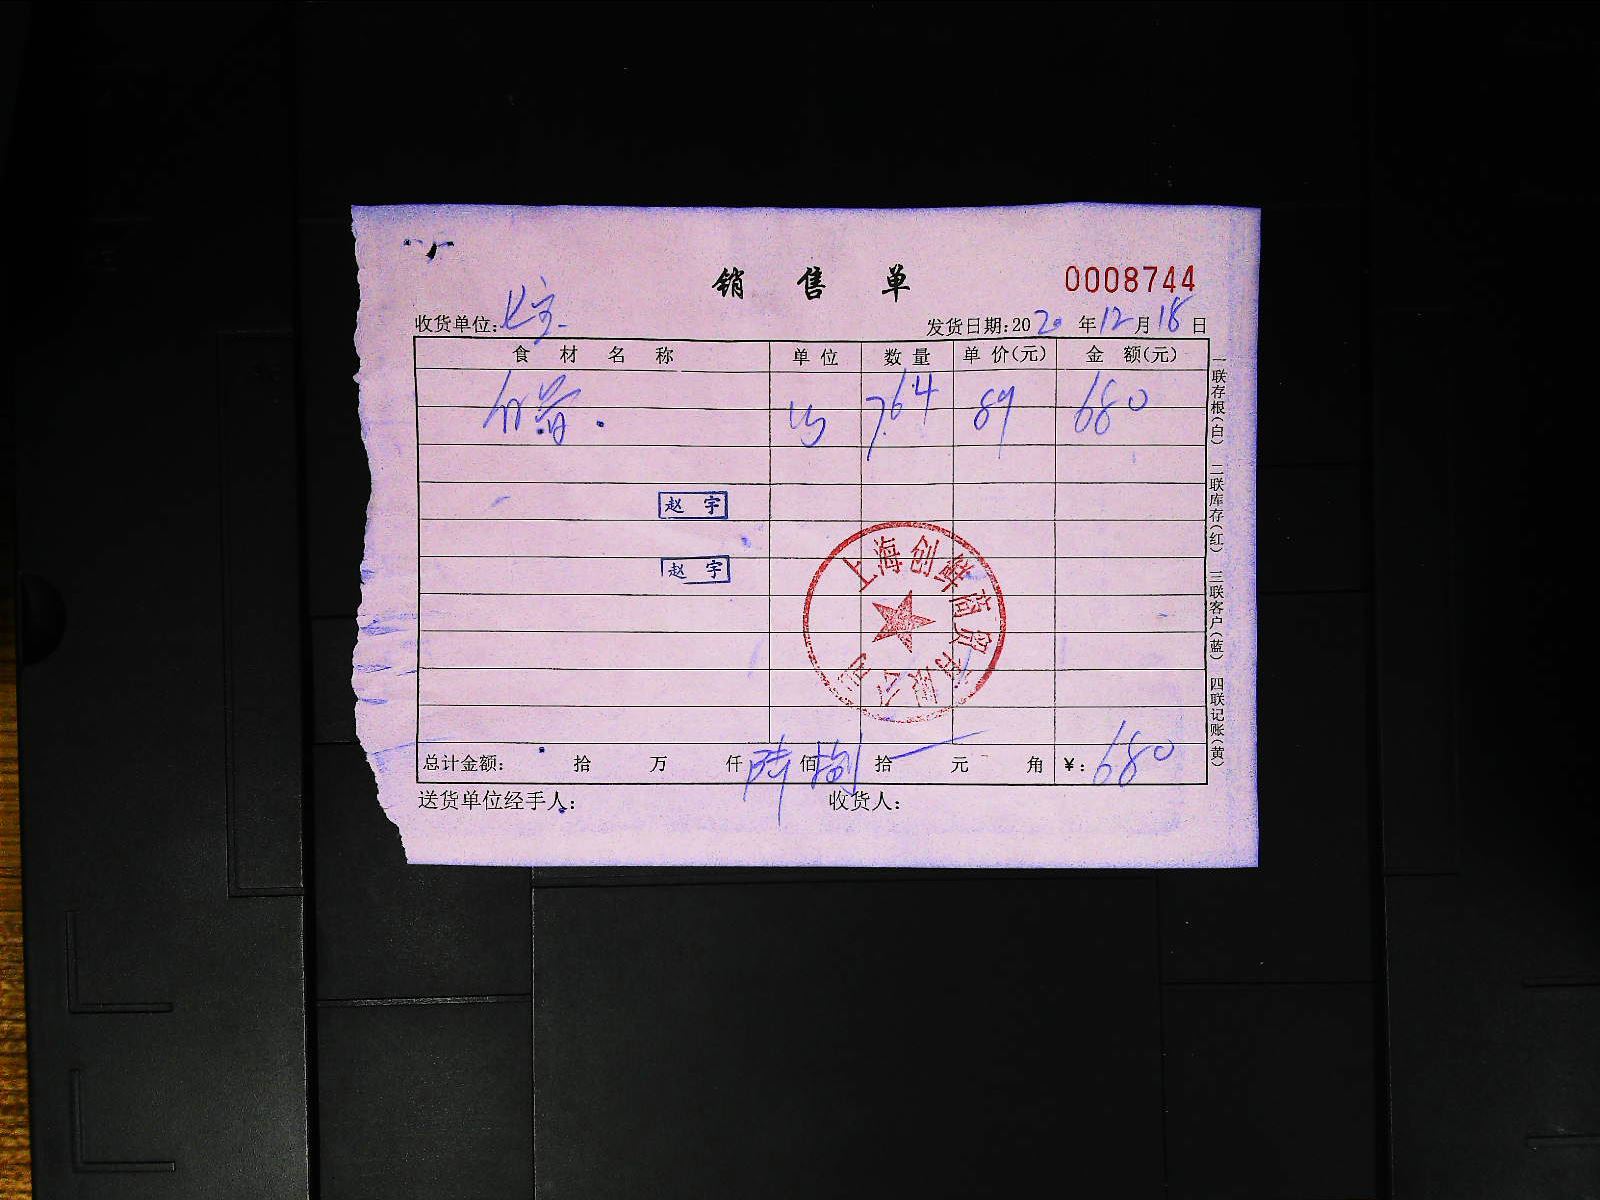 销售单
0008744
收货单位:
发货日期:2020年12月18日
食材名称 单位 数量 单价(元) 金额(元)
7.64 89 680
赵宇
赵宇
上海创鲜商贸有限公司
总计金额: 拾 万 仟 陆 佰 捌 拾 元 角 ¥:680
送货单位经手人: 收货人:
一联存根(白) 二联库存(红) 三联客户(蓝) 四联记账(黄)